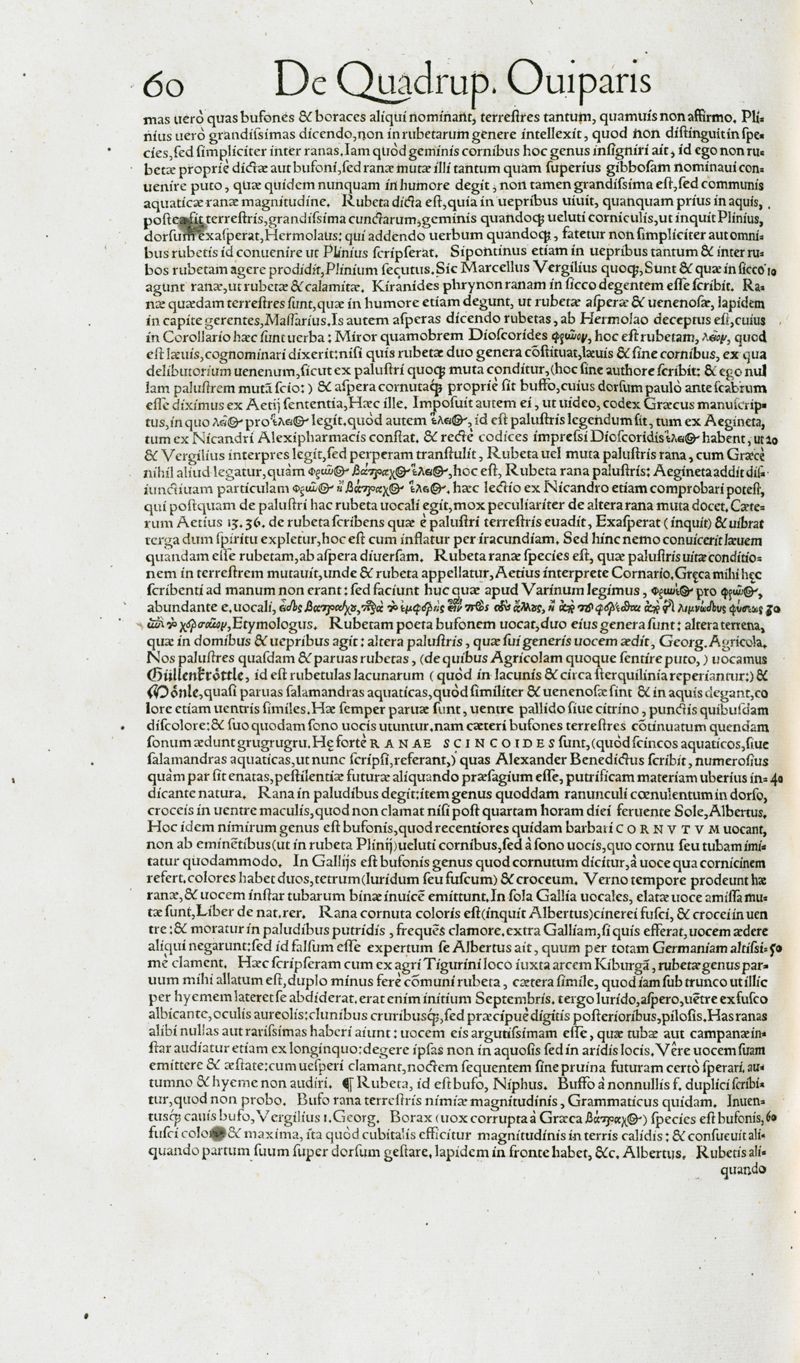 60 De Quadrup. Ouiparis
mas uerò quas bufones & boraces aliqui nominant, terrestres tantum, quamuis non affirmo. Pli-
nius uerò grandissimas dicendo, non in rubetarum genere intellexit, quod non distinguit in spe-
cies, sed simpliciter inter ranas. Iam quòd geminis cornibus hoc genus insigniri ait, id ego non ru-
betæ propriè dictæ aut bufoni, sed ranæ mutæ illi tantum quam superius gibbosam nominaui con-
uenire puto, quæ quidem nunquam in humore degit, non tamen grandissima est, sed communis
aquaticæ ranæ magnitudine. Rubeta dicta est, quia in uepribus uiuit, quanquam prius in aquis,
poste sit terrestris, grandissima cunctarum, geminis quandoqꝫ ueluti corniculis, ut inquit Plinius,
dorsum exasperat, Hermolaus: qui addendo uerbum quandoqꝫ, fatetur non simpliciter aut omni-
bus rubetis id conuenire ut Plinius scripserat. Sipontinus etiam in uepribus tantum & inter ru-
bos rubetam agere prodidit, Plinium secutus. Sic Marcellus Vergilius quoqꝫ, Sunt & quæ in sicco 10
agunt ranæ, ut rubetæ & calamitæ. Kiranides phrynon ranam in sicco degentem esse scribit. Ra-
næ quædam terrestres sunt, quæ in humore etiam degunt, ut rubetæ asperæ & uenenosæ, lapidem
in capite gerentes, Massarius. Is autem asperas dicendo rubetas, ab Hermolao deceptus est, cuius
in Corollario hæc sunt uerba: Miror quamobrem Dioscorides φρῦνον, hoc est rubetam, λεῖον, quod
est læuis, cognominari dixerit: nisi quis rubetæ duo genera cōstituat, læuis & sine cornibus, ex qua
delibutorium uenenum, sicut ex palustri quoqꝫ muta conditur, (hoc sine authore scribit: & ego nul
lam palustrem mutā scio:) & aspera cornutaqꝫ propriè sit buffo, cuius dorsum paulò ante scabrum
esse diximus ex Aetij sententia, Hæc ille. Imposuit autem ei, ut uideo, codex Græcus manuscrip-
tus, in quo λεῖος pro ἕλειος legit. quòd autem ἕλειος, id est palustris legendum sit, tum ex Aegineta,
tum ex Nicandri Alexipharmacis constat. & rectè codices impressi Dioscoridis ἕλειος habent, ut 20
& Vergilius interpres legit, sed perperam transtulit, Rubeta uel muta palustris rana, cum Græcè
nihil aliud legatur, quàm φρῦνος βάτραχος ἕλειος, hoc est, Rubeta rana palustris: Aegineta addit dis-
iunctiuam particulam φρῦνος ἢ βάτραχος ἕλειος. hæc lectio ex Nicandro etiam comprobari potest,
qui postquam de palustri hac rubeta uocali egit, mox peculiariter de altera rana muta docet. Cæte-
rum Aetius 13. 36. de rubeta scribens quæ è palustri terrestris euadit, Exasperat (inquit) & uibrat
terga dum spiritu expletur, hoc est cum inflatur per iracundiam. Sed hinc nemo conuicerit læuem
quandam esse rubetam, ab aspera diuersam. Rubeta ranæ species est, quæ palustris uitæ conditio-
nem in terrestrem mutauit, unde & rubeta appellatur, Aetius interprete Cornario. Gręca mihi hęc
scribenti ad manum non erant: sed faciunt huc quæ apud Varinum legimus, φρύνεος pro φρῦνος,
abundante e. uocali, εἶδος βατράχου, 30
Etymologus. Rubetam poeta bufonem uocat, duo eius genera sunt: altera terrena,
quæ in domibus & uepribus agit: altera palustris, quæ sui generis uocem ædit, Georg. Agricola.
Nos palustres quasdam & paruas rubetas, (de quibus Agricolam quoque sentire puto,) uocamus
Güllenkröttle, id est rubetulas lacunarum (quòd in lacunis & circa sterquilinia reperiantur:) &
Mönle, quasi paruas salamandras aquaticas, quòd similiter & uenenosæ sint & in aquis degant, co
lore etiam uentris similes. Hæ semper paruæ sunt, uentre pallido siue citrino, punctis quibusdam
discolore: & suo quodam sono uocis utuntur. nam cæteri bufones terrestres cōtinuatum quendam
sonum ædunt grugrugru. Hę fortè RANAE SCINCOIDES sunt, (quòd scincos aquaticos, siue
salamandras aquaticas, ut nunc scripsi, referant,) quas Alexander Benedictus scribit, numerosius
quàm par sit enatas, pestilentiæ futuræ aliquando præsagium esse, putrificam materiam uberius in- 40
dicante natura. Rana in paludibus degit: item genus quoddam ranunculi cœnulentum in dorso,
croceis in uentre maculis, quod non clamat nisi post quartam horam diei feruente Sole, Albertus.
Hoc idem nimirum genus est bufonis, quod recentiores quidam barbari CORNVTVM uocant,
non ab eminētibus (ut in rubeta Plinij) ueluti cornibus, sed à sono uocis, quo cornu seu tubam imi-
tatur quodammodo. In Gallijs est bufonis genus quod cornutum dicitur, à uoce qua cornicinem
refert. colores habet duos, tetrum (luridum seu fuscum) & croceum. Verno tempore prodeunt hæ
ranæ, & uocem instar tubarum binæ inuicē emittunt. In sola Gallia uocales, elatæ uoce amissa mu-
tæ sunt, Liber de nat. rer. Rana cornuta coloris est (inquit Albertus) cinerei fusci, & crocei in uen
tre: & moratur in paludibus putridis, frequēs clamore. extra Galliam, si quis efferat, uocem ædere
aliqui negarunt: sed id falsum esse expertum se Albertus ait, quum per totam Germaniam altissi- 50
mè clament. Hæc scripseram cum ex agri Tigurini loco iuxta arcem Kiburgā, rubetæ genus par-
uum mihi allatum est, duplo minus ferè cōmuni rubeta, cætera simile, quod iam sub trunco ut illic
per hyemem lateret se abdiderat. erat enim initium Septembris. tergo lurido, aspero, uētre ex fusco
albicante, oculis aureolis: clunibus cruribusqꝫ, sed præcipuè digitis posterioribus, pilosis. Has ranas
alibi nullas aut rarissimas haberi aiunt: uocem eis argutissimam esse, quæ tubæ aut campanæ in-
star audiatur etiam ex longinquo: degere ipsas non in aquosis sed in aridis locis. Vêre uocem suam
emittere & æstate: cum uesperi clamant, noctem sequentem sine pruina futuram certò sperari. au-
tumno & hyeme non audiri. ¶ Rubeta, id est bufo, Niphus. Buffo à nonnullis f. duplici scribi-
tur, quod non probo. Bufo rana terrestris nimiæ magnitudinis, Grammaticus quidam. Inuen-
tusqꝫ cauis bufo, Vergilius 1. Georg. Borax (uox corrupta à Græca βάτραχος) species est bufonis, 60
fusci colo & maxima, ita quòd cubitalis efficitur magnitudinis in terris calidis: & consueuit ali-
quando partum suum super dorsum gestare, lapidem in fronte habet, &c. Albertus. Rubetis ali-
quando